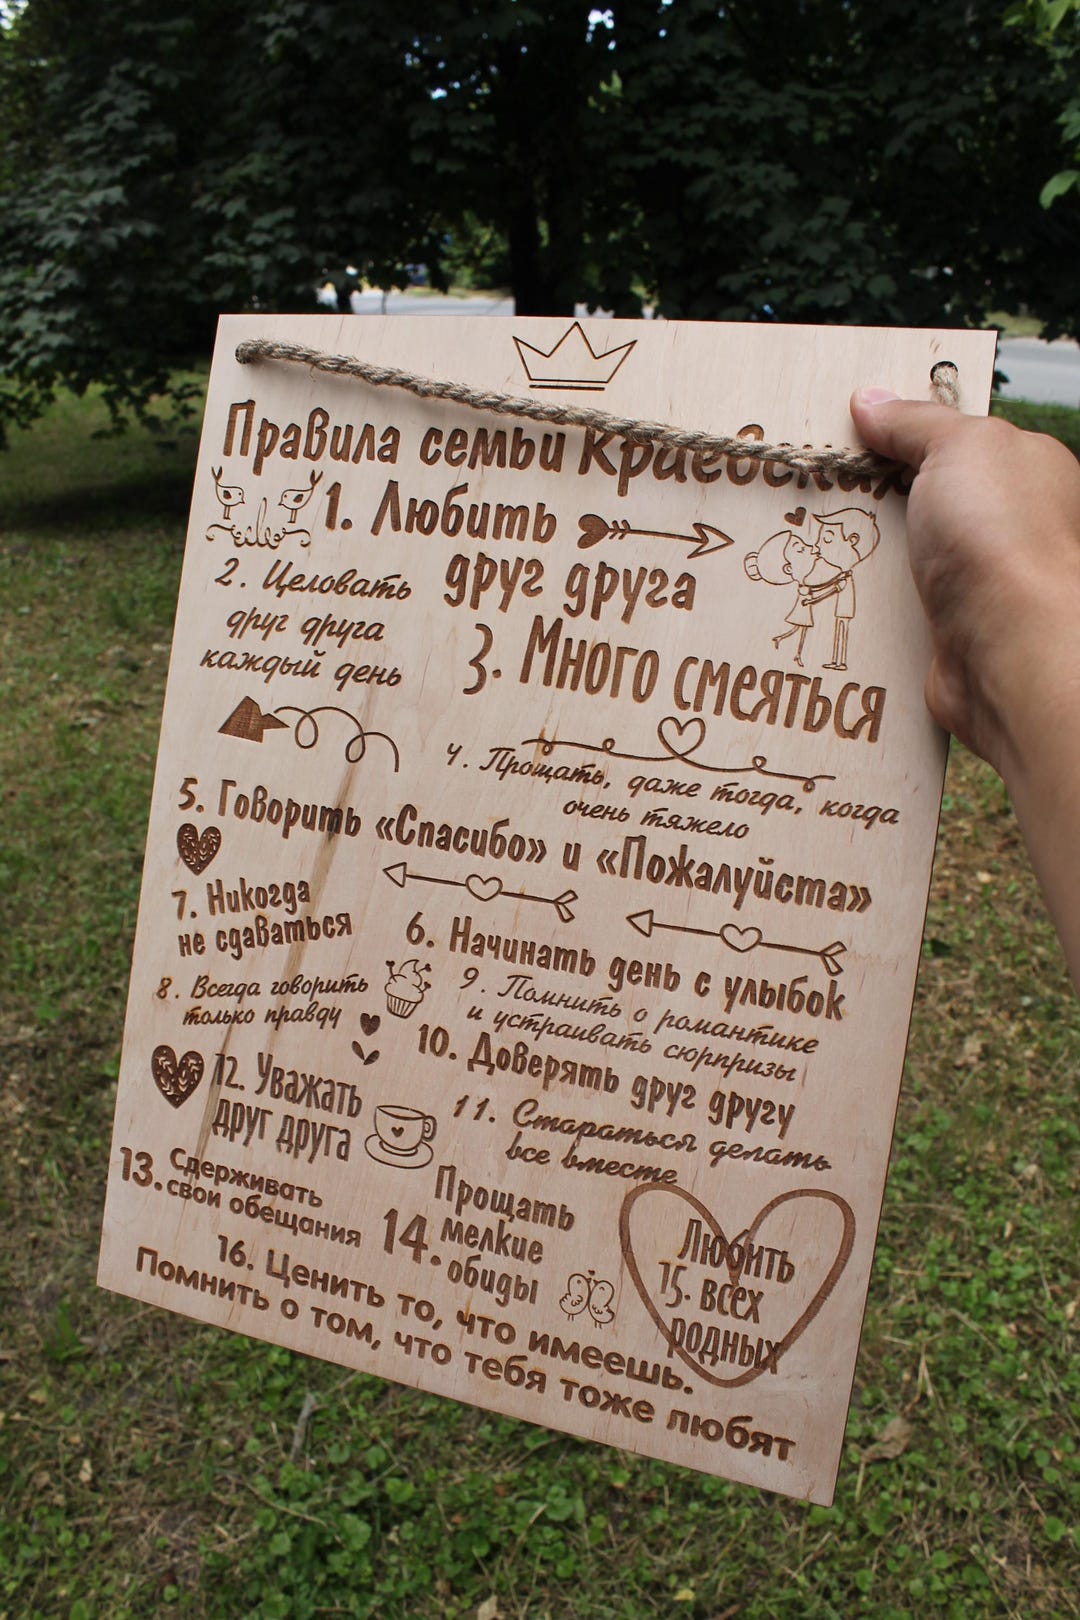 Правила семьи Краевских
1. Любить
друг друга
2. Целовать
друг друга
каждый день
3. Много смеяться
4. Прощать, даже тогда, когда
очень тяжело
5. Говорить «Спасибо» и «Пожалуйста»
7. Никогда
не сдаваться
6. Начинать день с улыбок
8. Всегда говорить
только правду
9. Помнить о романтике
и устраивать сюрпризы
10. Доверять друг другу
12. Уважать
друг друга
11. Стараться делать
все вместе
13. Сдерживать
свои обещания
14. Прощать
мелкие
обиды
Любить
15. всех
родных
16. Ценить то, что имеешь.
Помнить о том, что тебя тоже любят